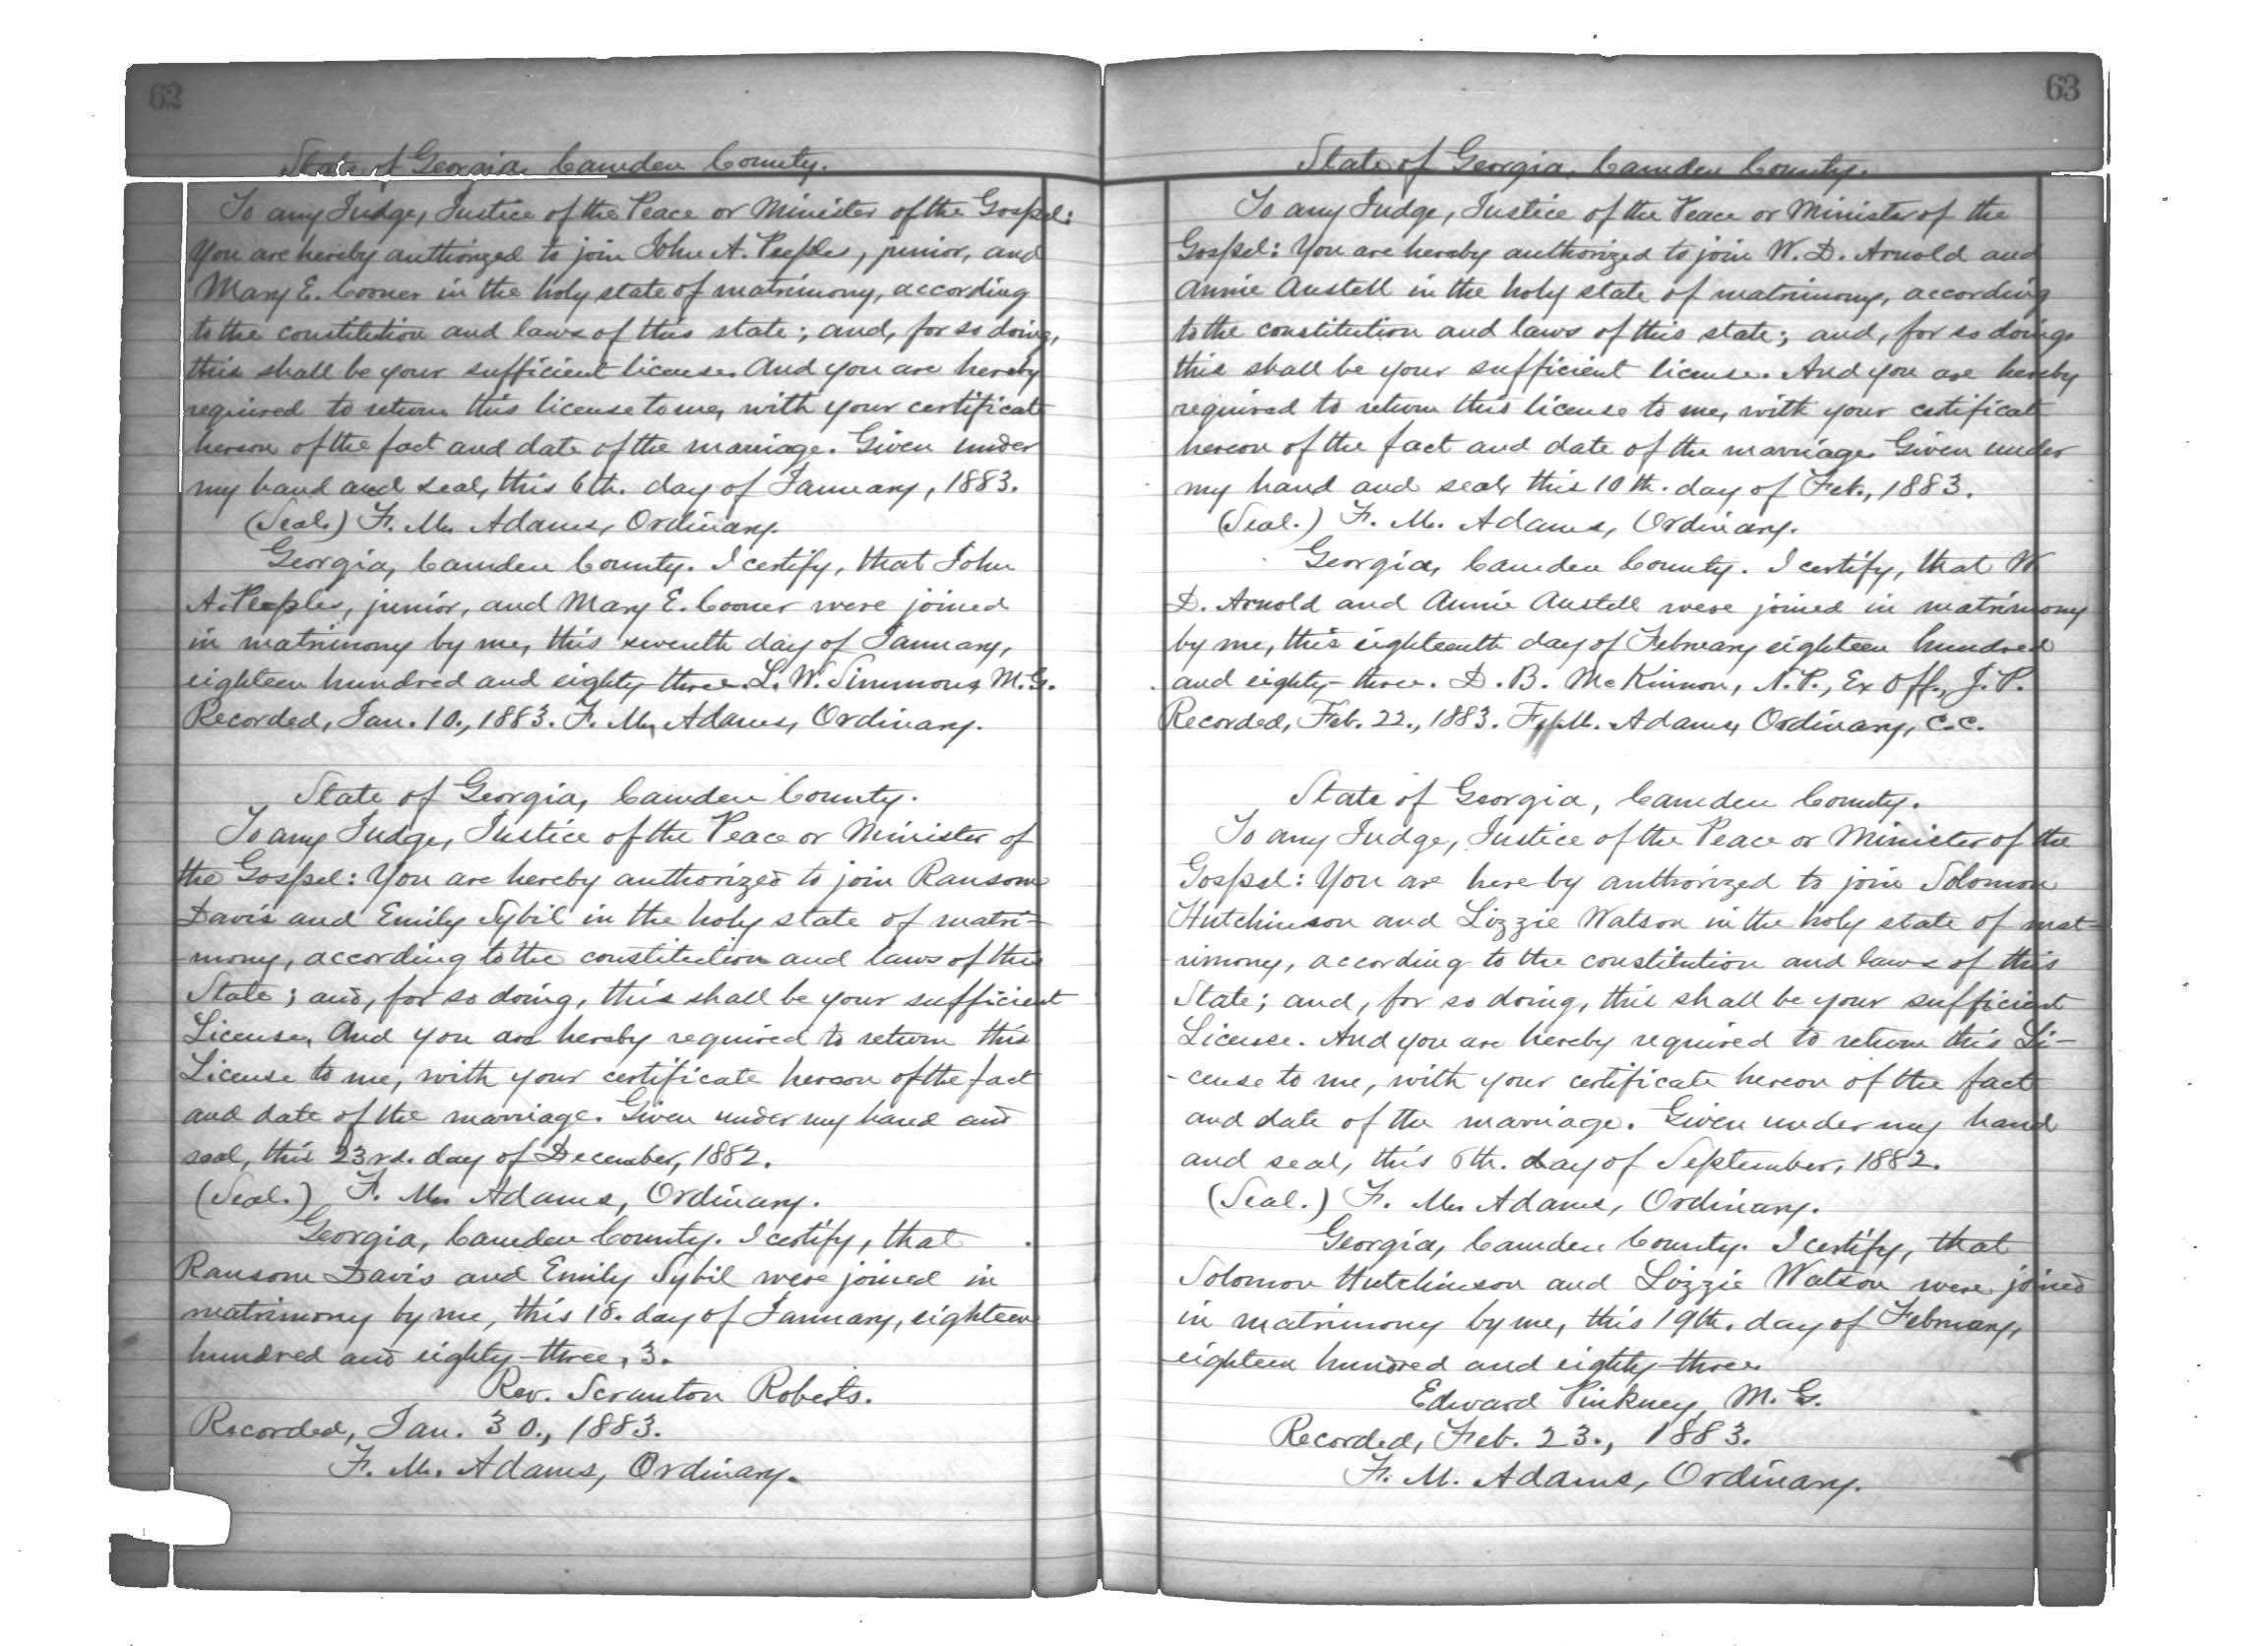 62
State of Georgia, Camden County.
To any Judge, Justice of the Peace or Minister of the Gospel:
You are hereby authorized to join John A. Peeples, junior, and
Mary E. Cooner in the holy state of matrimony, according
to the constitution and laws of this state; and, for so doing,
this shall be your sufficient license. And you are hereby
required to return this license to me, with your certificate
hereon of the fact and date of the marriage. Given under
my hand and seal, this 6th. day of January, 1883.
(Seal.) F. M. Adams, Ordinary.
Georgia, Camden County. I certify, that John
A. Peeples, junior, and Mary E. Cooner were joined
in matrimony by me, this seventh day of January,
eighteen hundred and eighty-three. L. W. Simmons, M. G.
Recorded, Jan. 10., 1883. F. M. Adams, Ordinary.
State of Georgia, Camden County.
To any Judge, Justice of the Peace or Minister of
the Gospel: You are hereby authorized to join Ransom
Davis and Emily Sybil in the holy state of matri-
mony, according to the constitution and laws of this
State; and, for so doing, this shall be your sufficient
License. And you are hereby required to return this
License to me, with your certificate hereon of the fact
and date of the marriage. Given under my hand and
seal, this 23rd. day of December, 1882.
(Seal.) F. M. Adams, Ordinary.
Georgia, Camden County. I certify, that
Ransom Davis and Emily Sybil were joined in
matrimony by me, this 18. day of January, eighteen
hundred and eighty-three, 3.
Rev. Scranton Roberts.
Recorded, Jan. 30., 1883.
F. M. Adams, Ordinary.
63
State of Georgia, Camden County.
To any Judge, Justice of the Peace or Minister of the
Gospel: You are hereby authorized to join W. D. Arnold and
Annie Austell in the holy state of matrimony, according
to the constitution and laws of this state; and, for so doing,
this shall be your sufficient license. And you are hereby
required to return this license to me, with your certificate
hereon of the fact and date of the marriage. Given under
my hand and seal, this 10th. day of Feb., 1883.
(Seal.) F. M. Adams, Ordinary.
Georgia, Camden County. I certify, that W.
D. Arnold and Annie Austell were joined in matrimony
by me, this eighteenth day of February eighteen hundred
and eighty-three. D. B. McKinnon, N. P., Ex Off., J. P.
Recorded, Feb. 22., 1883. F. M. Adams, Ordinary, C. C.
State of Georgia, Camden County.
To any Judge, Justice of the Peace or Minister of the
Gospel: You are hereby authorized to join Solomon
Hutchinson and Lizzie Watson in the holy state of mat-
rimony, according to the constitution and laws of this
State; and, for so doing, this shall be your sufficient
License. And you are hereby required to return this Li-
-cense to me, with your certificate hereon of the fact
and date of the marriage. Given under my hand
and seal, this 6th. day of September, 1882.
(Seal.) F. M. Adams, Ordinary.
Georgia, Camden County. I certify, that
Solomon Hutchinson and Lizzie Watson were joined
in matrimony by me, this 19th. day of February,
eighteen hundred and eighty-three
Edward Pinkney, M. G.
Recorded, Feb. 23., 1883.
F. M. Adams, Ordinary.